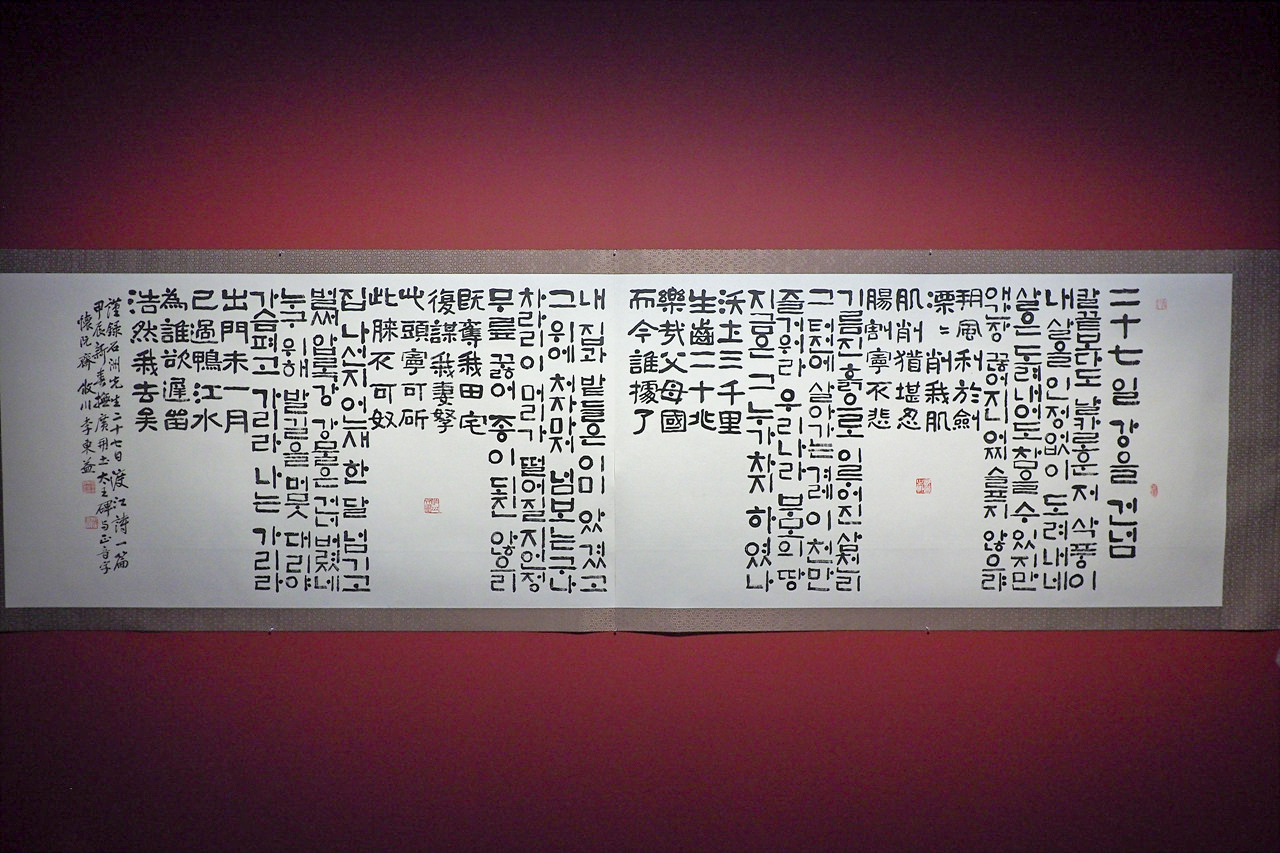 二十七일 강을 건넘
칼끝보다도 날카로운 저 삭풍이
내 살을 인정없이 도려내네
살은 도려내어도 참을 수 있지만
애간장 끊어진 어찌 슬프지 않으랴
朔風利於劍
凓〻削我肌
肌削猶堪忍
腸割寧不悲
기름진 흙으로 이루어진 삼천리
그 터전에 살아가는 겨레 이천만
즐거워라 우리나라 부모의 땅
지금은 그 누가 차지 하였나
沃土三千里
生齒二十兆
樂哉父母國
而今誰據了
내 집과 밭들은 이미 앗겼고
그 위에 처자마저 넘보는구나
차라리 이 머리가 떨어질지언정
무릎 꿇어 종이 되진 않으리
旣奪我田宅
復謀我妻孥
此頭寧可斫
此膝不可奴
집 나선지 어느새 한 달 넘기고
벌써 압록강 강물을 건너버렸네
누구 위해 발길을 머뭇 대리야
가슴펴고 가리라 나는 가리라
出門未一月
已過鴨江水
為誰欲遲留
浩然我去矣
謹錄石洲先生二十七日渡江詩一篇
甲辰新春撫廣開土太王碑与正音字
齋 川 李東益